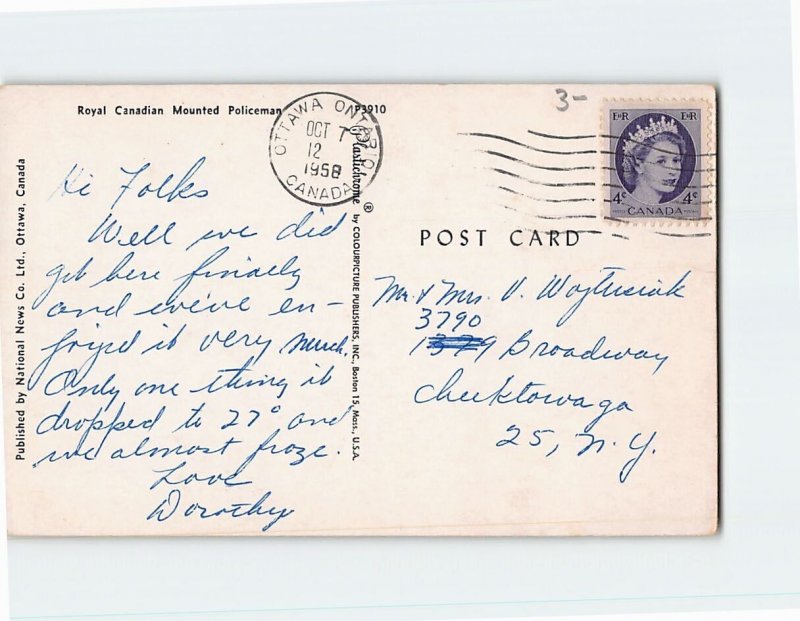 Royal Canadian Mounted Policeman
P3910
3-
OTTAWA ONTARIO
OCT 7
12
1958
CANADA
E R
E R
4¢
4¢
CANADA
Published by National News Co. Ltd., Ottawa, Canada
Plastichrome ® by COLOURPICTURE PUBLISHERS, INC., Boston 15, Mass., U.S.A.
POST CARD
Hi Folks
Well we did
get here finially
and we've en-
joyed it very much.
Only one thing it
dropped to 27° and
we almost froze.
Love
Dorothy
Mr. & Mrs. V. Wojtusiak
3790
Broadway
Cheektowaga
25, N.Y.